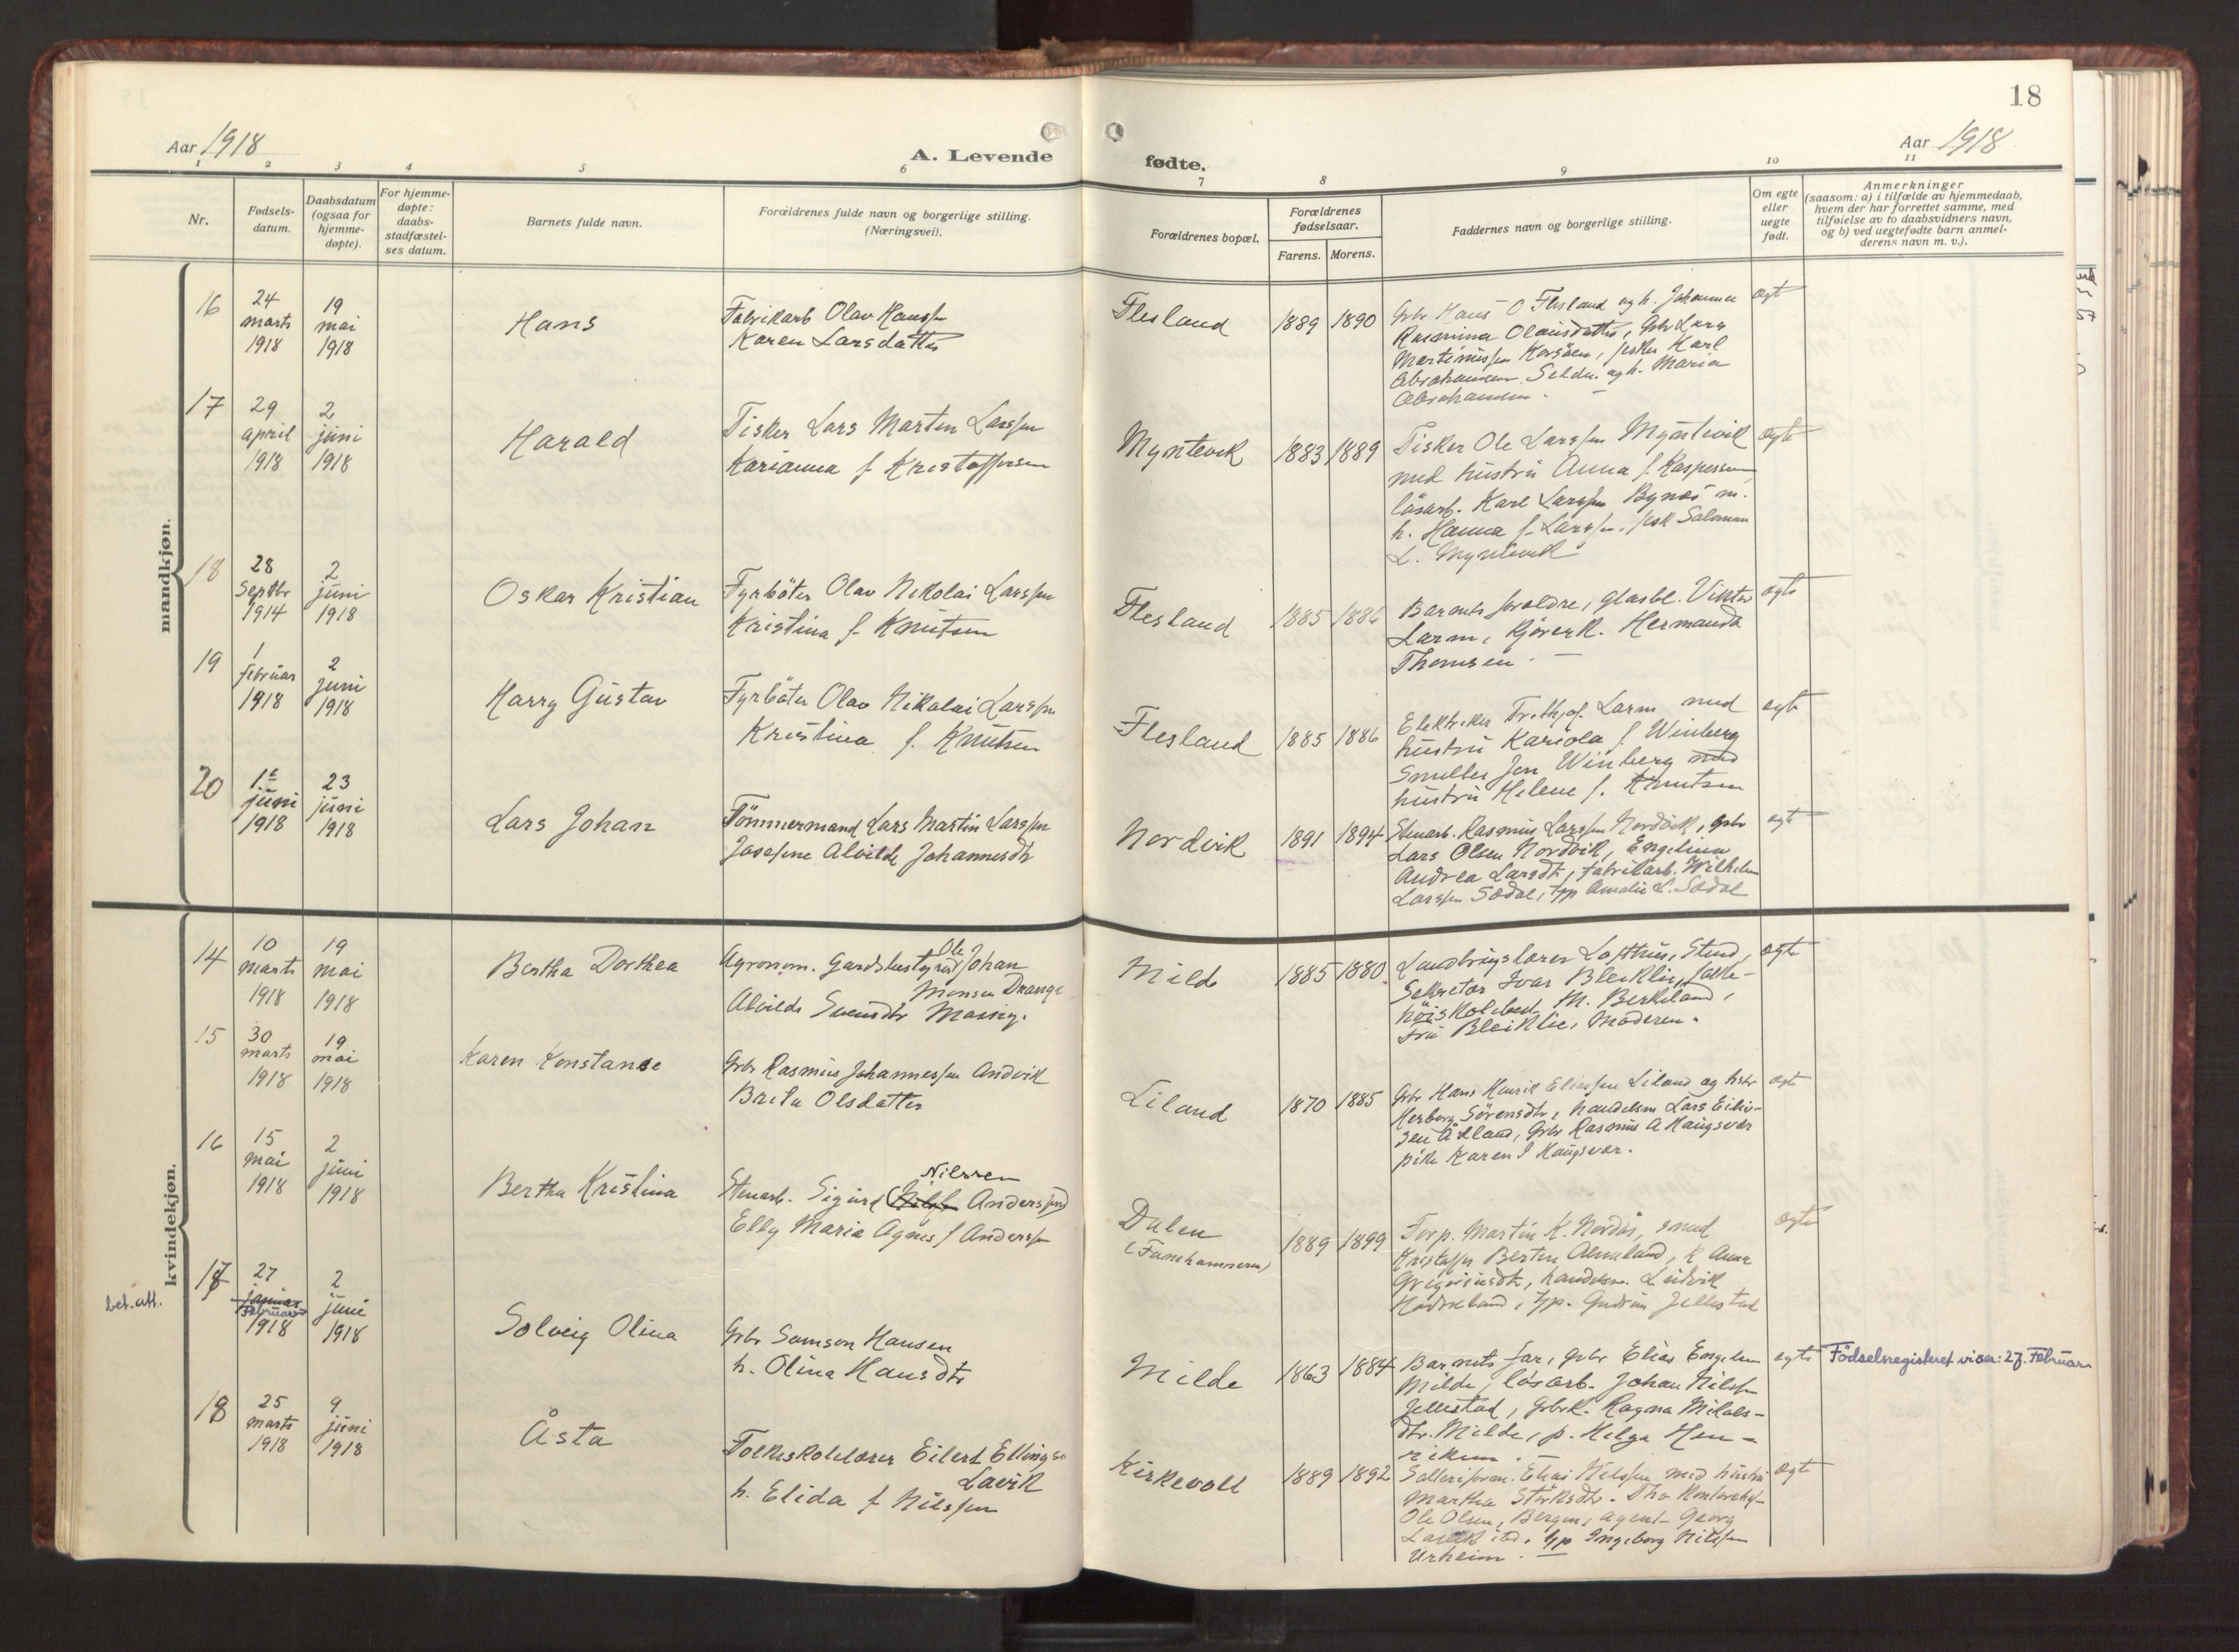 18
Aar 1918
A. Levende
fødte.
Aar 1918
1 2 3 4 5 6 7 8 9 10 11
Nr.
Fødsels-
datum.
Daabsdatum
(ogsaa for
hjemme-
døpte).
For hjemme-
døpte:
daabs-
stadfæstel-
ses datum.
Barnets fulde navn.
Forældrenes fulde navn og borgerlige stilling.
(Næringsvei).
Forældrenes bopæl.
Forældrenes
fødselsaar.
Farens. Morens.
Faddernes navn og borgerlige stilling.
Om egte
eller
uegte
født.
Anmerkninger
(saasom: a) i tilfælde av hjemmedaab,
hvem der har forrettet samme, med
tilføielse av to daabsvidners navn,
og b) ved uegtefødte barn anmel-
derens navn m. v.).
mandkjøn.
16
24
marts
1918
19
mai
1918
Hans
Fabrikarb Olav Hanssen
Karen Larsdatter
Flesland
1889 1890
Gbr Hans O Flesland og h. Johanna
Rasmina Olaisdatter, Gbr Lars
Martinussen Korsøen, fisker Karl
Abrahamsen og h. Maria
Abrahamsen.
ægt
17
29
april
1918
2
juni
1918
Harald
Fisker Lars Martin Larssen
Karianna f Kristoffersen
Myntevik
1883 1889
Fisker Ole Larssen Myntevik
med hustru Anna f. Kaspersen
løsarb. Karl Larssen Bynes m.
h. Hanna f. Larssen, fisk Salomon
L. Myntevik
ægte
18
28
Septbr
1914
2
juni
1918
Oskar Kristian
Fyrböter Olav Nikolai Larssen
Kristina f. Knutsen
Flesland
1885 1886
Barnets foreldre, glasbl. Viktor
Larm, Hermanda
Thomsen.
ægte
19
1
februar
1918
2
juni
1918
Harry Gustav
Fyrböter Olav Nikolai Larssen
Kristina f. Knutsen
Flesland
1885 1886
Elektriker Frithjof Larm med
hustru Kariola f. Winberg
Smelter Jon Winberg med
hustru Helene f. Knutsen
ægte
20
1ē
juni
1918
23
juni
1918
Lars Johan
Tömmermand Lars Martin Larssen
Josefine Alvilde Johannesdtr
Nordvik
1891 1894
Stenarb. Rasmus Larssen Nordvik, Gbr
Lars Olsen Nordvik, Engelina
Andrea Larsdtr, fabrikarb. Wilhelm
Larssen Sædal, typ Amalie L. Sædal
ægte
kvindekjøn.
14
10
marts
1918
19
mai
1918
Bertha Dorthea
Agronom. Gardsbestyrer Ole Johan
Monsen Drange
Alvilde Svensdtr Massig.
Milde
1885 1880
Landbrugslærer Lofthus, Stend,
Sekretær Ivar Bleiklie, folke-
høiskolebest. M. Berkeland,
Fru Bleiklie, Moderen.
ægte
15
30
marts
1918
19
mai
1918
Karen Konstanse
Gbr Rasmus Johannessen Andvik
Brita Olsdatter
Liland
1870 1885
Gbr Hans Henrik Eliassen Liland og hstr
Herborg Sörensdtr, handelsm Lars Eiliv-
sen Ådland, Gbr Rasmus A Haugsvær
pike Karen J Haugsvær.
ægte
16
15
mai
1918
2
juni
1918
Bertha Kristina
Nilssen
Stenarb. Sigurd (Nilss Anderssen)
Elby Maria Agnes f Anderssen
Dalen
(Fanehammeren)
1889 1899
Forp. Martin K. Nordås, smed
Kristoffer Berten Almeland, K Anna
Grigoriusdtr, handelsm. Ludvik
Hordveland, typ. Gudrun Jellestad
ægte
bet. att.
17
27
januar
Februar
1918
2
juni
1918
Solveig Olina
Gbr Samson Hansen
h. Olina Hansdtr
Milde
1863 1884
Barnets far, gbr Elias Engelsen
Milde, løsarb. Johan Nilssen
Jellestad, gbrk. Ragna Nilols-
dtr. Milde, p. Helga Hen-
riksen.
ægte
Födselsregisteret viser: 27. Februar
18
25
marts
1918
9
juni
1918
Åsta
Folkeskolelærer Eilert Ellings
Lavik
h. Elida f Nilssen
Kirkevoll
1889 1892
Elias Nilssen med hustru
Martha Størksdtr.
Ole Olsen, Bergen, agent Georg
Lavik ibd, typ Ingeborg Nilssen
Urheim.
ægte